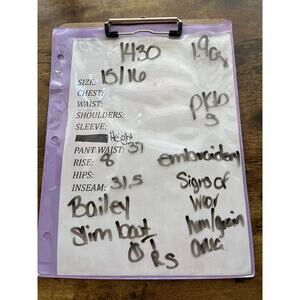 1430 1.9oz
SIZE: 15/16
CHEST:
WAIST:
SHOULDERS:
SLEEVE:
Height
PANT WAIST: 37
RISE: 8
HIPS:
INSEAM: 31.5
Bailey
Slim boot
RS
embroidery
Signs of
wear
hem/groin
area